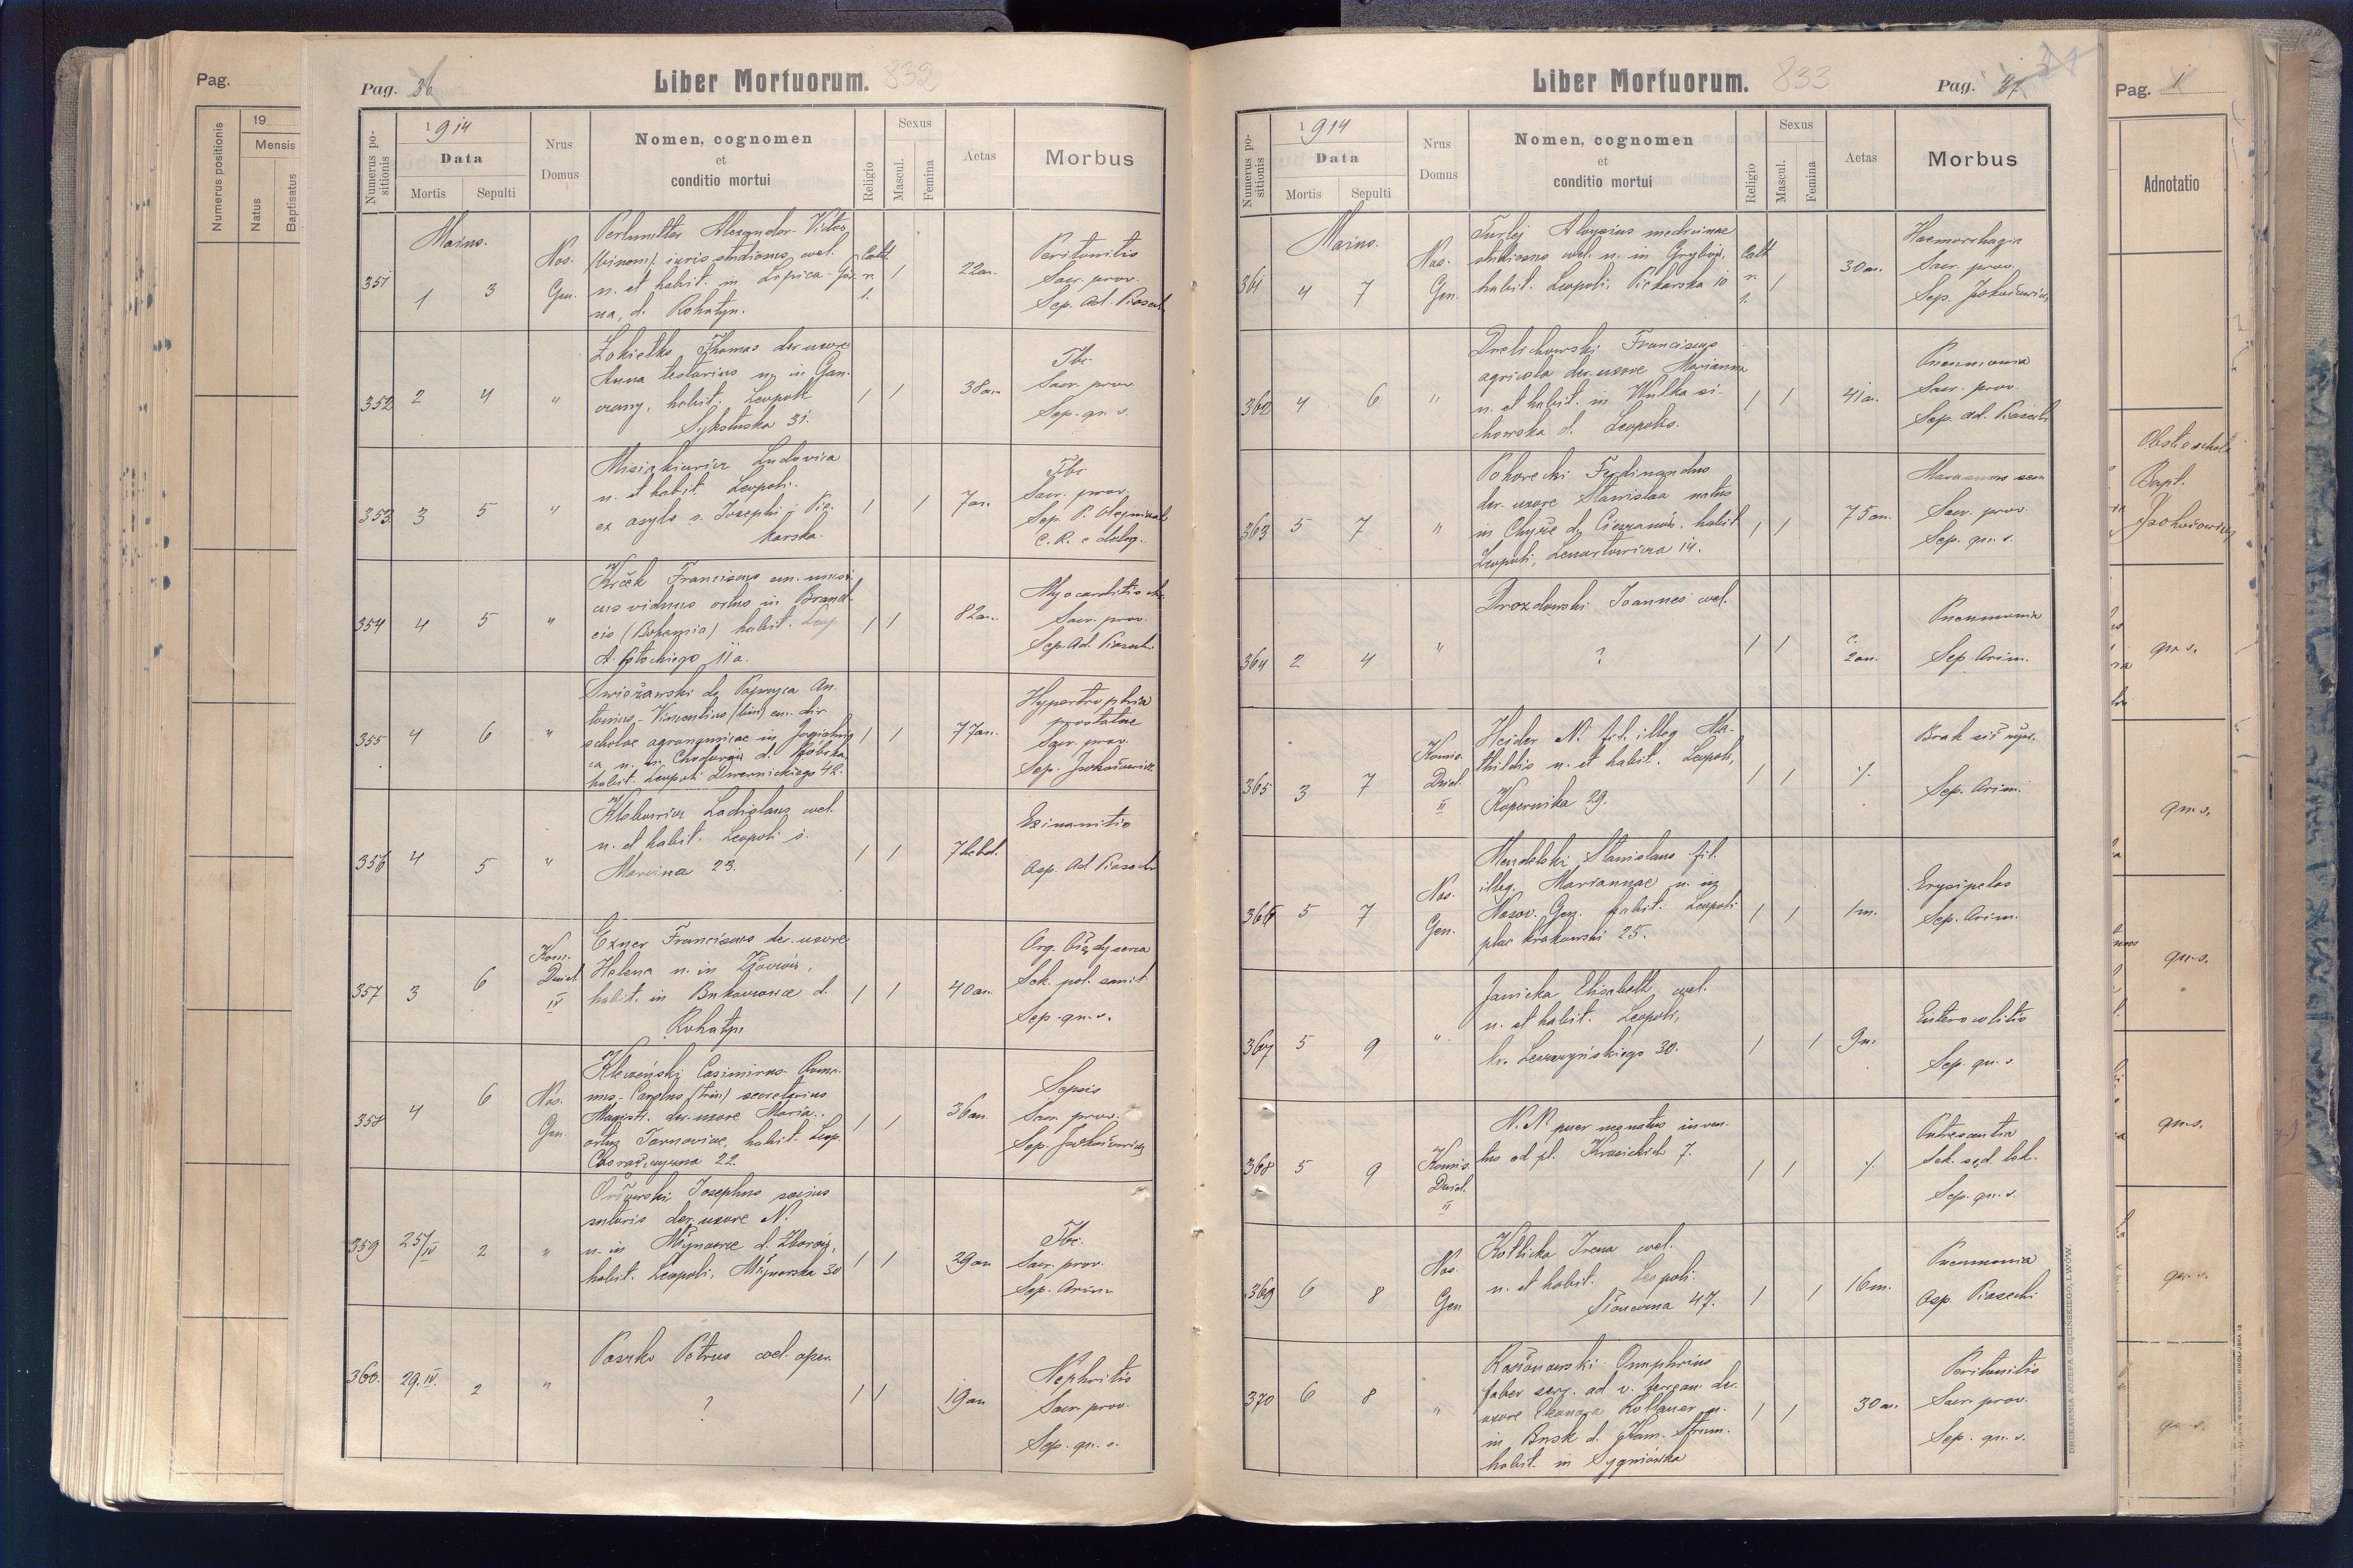 Pag.
Numerus positionis
19
Mensis
Natus
Baptisatus
Pag. 36
Liber Mortuorum. 832
Numerus positionis
1914
Data
Mortis
Sepulti
Nrus Domus
Nomen, cognomen
et
conditio mortui
Religio
Sexus
Mascul.
Femina
Aetas
Morbus
Maius.
351
1
3
Nos.
Gen.
Perlmutter Alexander-Victor
(binom) iuris studiosus, coel.
n. et habit. in Lipica-Gór-
na, d. Rohatyn.
Cath.
r.
l.
1
22an.
Peritonitis
Sacr. prov.
Sep. Ad. Piasecki
352
2
4
"
Łokietko Thomas der. uxore
Anna testarius n. in Gan-
czary, habit. Leopoli
Sykstuska 31.
1
1
38an.
Tbc.
Sacr. prov.
Sep. qu. s.
353.
3
5
"
Misiakiewicz Ludovica
n. et habit. Leopoli.
ex asylo s. Josephi, Pie-
karska.
1
1
7an.
Tbc.
Sacr. prov.
Sep. P. Olejniczak
C. R. e deleg.
354
4
5
"
Krček Franciscus em. musi-
cus viduus ortus in Brand-
eis (Bohemia) habit. Leop.
A. Potockiego 11a.
1
1
82an.
Myocarditis ch.
Sacr. prov.
Sep. Ad. Piasecki
355
4
6
"
Świeżawski de Paprzyca An-
tonius-Vincentius (bin) em. dir.
scholae agronomicae in Jagielnica
n. in Chodorów d. Bóbrka,
habit. Leopoli Dwernickiego 42.
1
1
77an.
Hypertrophia
prostatae
Sacr. prov.
Sep. Jachowicz
356
4
5
"
Ladislaus coel.
n. et habit. Leopoli s.
Marcina 23.
1
1
7hebd.
Exinanitio
Asp. Ad Piasecki
357
3
6
Kom.
Dziel.
IV
Exner Franciscus der. uxore
Helena n. in
habit. in Bukaczowce d.
Rohatyn
1
1
40an.
Org. błędy serca
Sek. pol. sanit.
Sep. qu. s.
358
4
6
Nos.
Gen.
Kleczeński Casimirus-Roma-
nus-Carolus (trin) secretarius
Magistr. der. uxore Maria.
ortus Tarnoviae, habit. Leop.
22.
1
1
36an.
Sepsis
Sacr. prov.
Sep. Jachowicz
359
25/IV
2
"
Josephus socius
sutoris der. uxore N.
n. in Młynowce d. Zborów,
habit. Leopoli, Młynarska 30
1
1
29an
Tbc.
Sacr. prov.
Sep. Arim
360.
29.IV.
2
"
Paszko Petrus coel. oper.
?
1
1
19an
Nephritis
Sacr. prov.
Sep. qu. s.
Liber Mortuorum. 833
Pag. 37
Numerus positionis
1914
Data
Mortis
Sepulti
Nrus Domus
Nomen, cognomen
et
conditio mortui
Religio
Sexus
Mascul.
Femina
Aetas
Morbus
Maius.
361
4
7
Nos.
Gen.
Turlej Aloysius medicinae
studiosus coel. n. in Grybów,
habit. Leopoli. Piekarska 10
Cath
r.
l.
1
30an.
Haemorrhagia
Sacr. prov.
Sep. Jachowicz
362
4
6
"
Drelichowski Franciscus
agricola der. uxore Marianna
n. et habit. in Wulka si-
chowska d. Leopolis.
1
1
41a.
Pneumonia
Sacr. prov.
Sep. Ad. Piasecki
363
5
7
"
Pohorecki Ferdinandus
der. uxore Stanislaa natus
in Chyże d. Cieszanów, habit
Leopoli, Lenartowicza 14.
1
1
75an.
Marasmus sen
Sacr. prov.
Sep. qu. s.
364
2
4
"
Drozdowski Joannes coel.
?
1
1
c.
2an.
Pneumonia
Sep. Arim.
365
3
7
Komis.
Dziel.
II
Heider N. fil. illeg. Ma-
thildis n. et habit. Leopoli,
Kopernika 29.
1
1
Brak sił żyw.
Sep. Arim.
366
5
7
Nos.
Gen.
Mendelski Stanislaus fil.
illeg. Mariannae n. in
Nosoc. Gen. habit. Leopoli
plac krakowski 25.
1
1
1m.
Erysipelas
Sep. Arim.
367
5
9
"
Janicka Elisabeth coel.
n. et habit. Leopoli,
kr. Leszczyńskiego 30.
1
1
9m.
Enterocolitis
Sep. qu. s
368
5
9
Komis.
Dziel.
II
N. N. puer neonatus inven-
tus ad pl. Krasickich 7.
1
1
Putrescentia
Sek. sąd. lek.
Sep. qu. s.
369
6
8
Nos.
Gen
Kotlicka Irena coel.
n. et habit. Leopoli.
47.
1
1
16m.
Pneumonia
Asp. Piasecki
370
6
8
"
Onuphrius
faber serv. ad v. ferream der.
uxore Eleonora n.
in Busk d. Kam. Strum.
habit. in Sygniówka
1
1
30an.
Peritonitis
Sacr. prov.
Sep. qu. s.
DRUKARNIA JÓZEFA CHĘCIŃSKIEGO, LWÓW.
Pag. 1
Adnotatio
Bapt.
Jachowicz
qu. s.
qu. s.
qu. s.
qu. s.
qu. s.
qu. s.